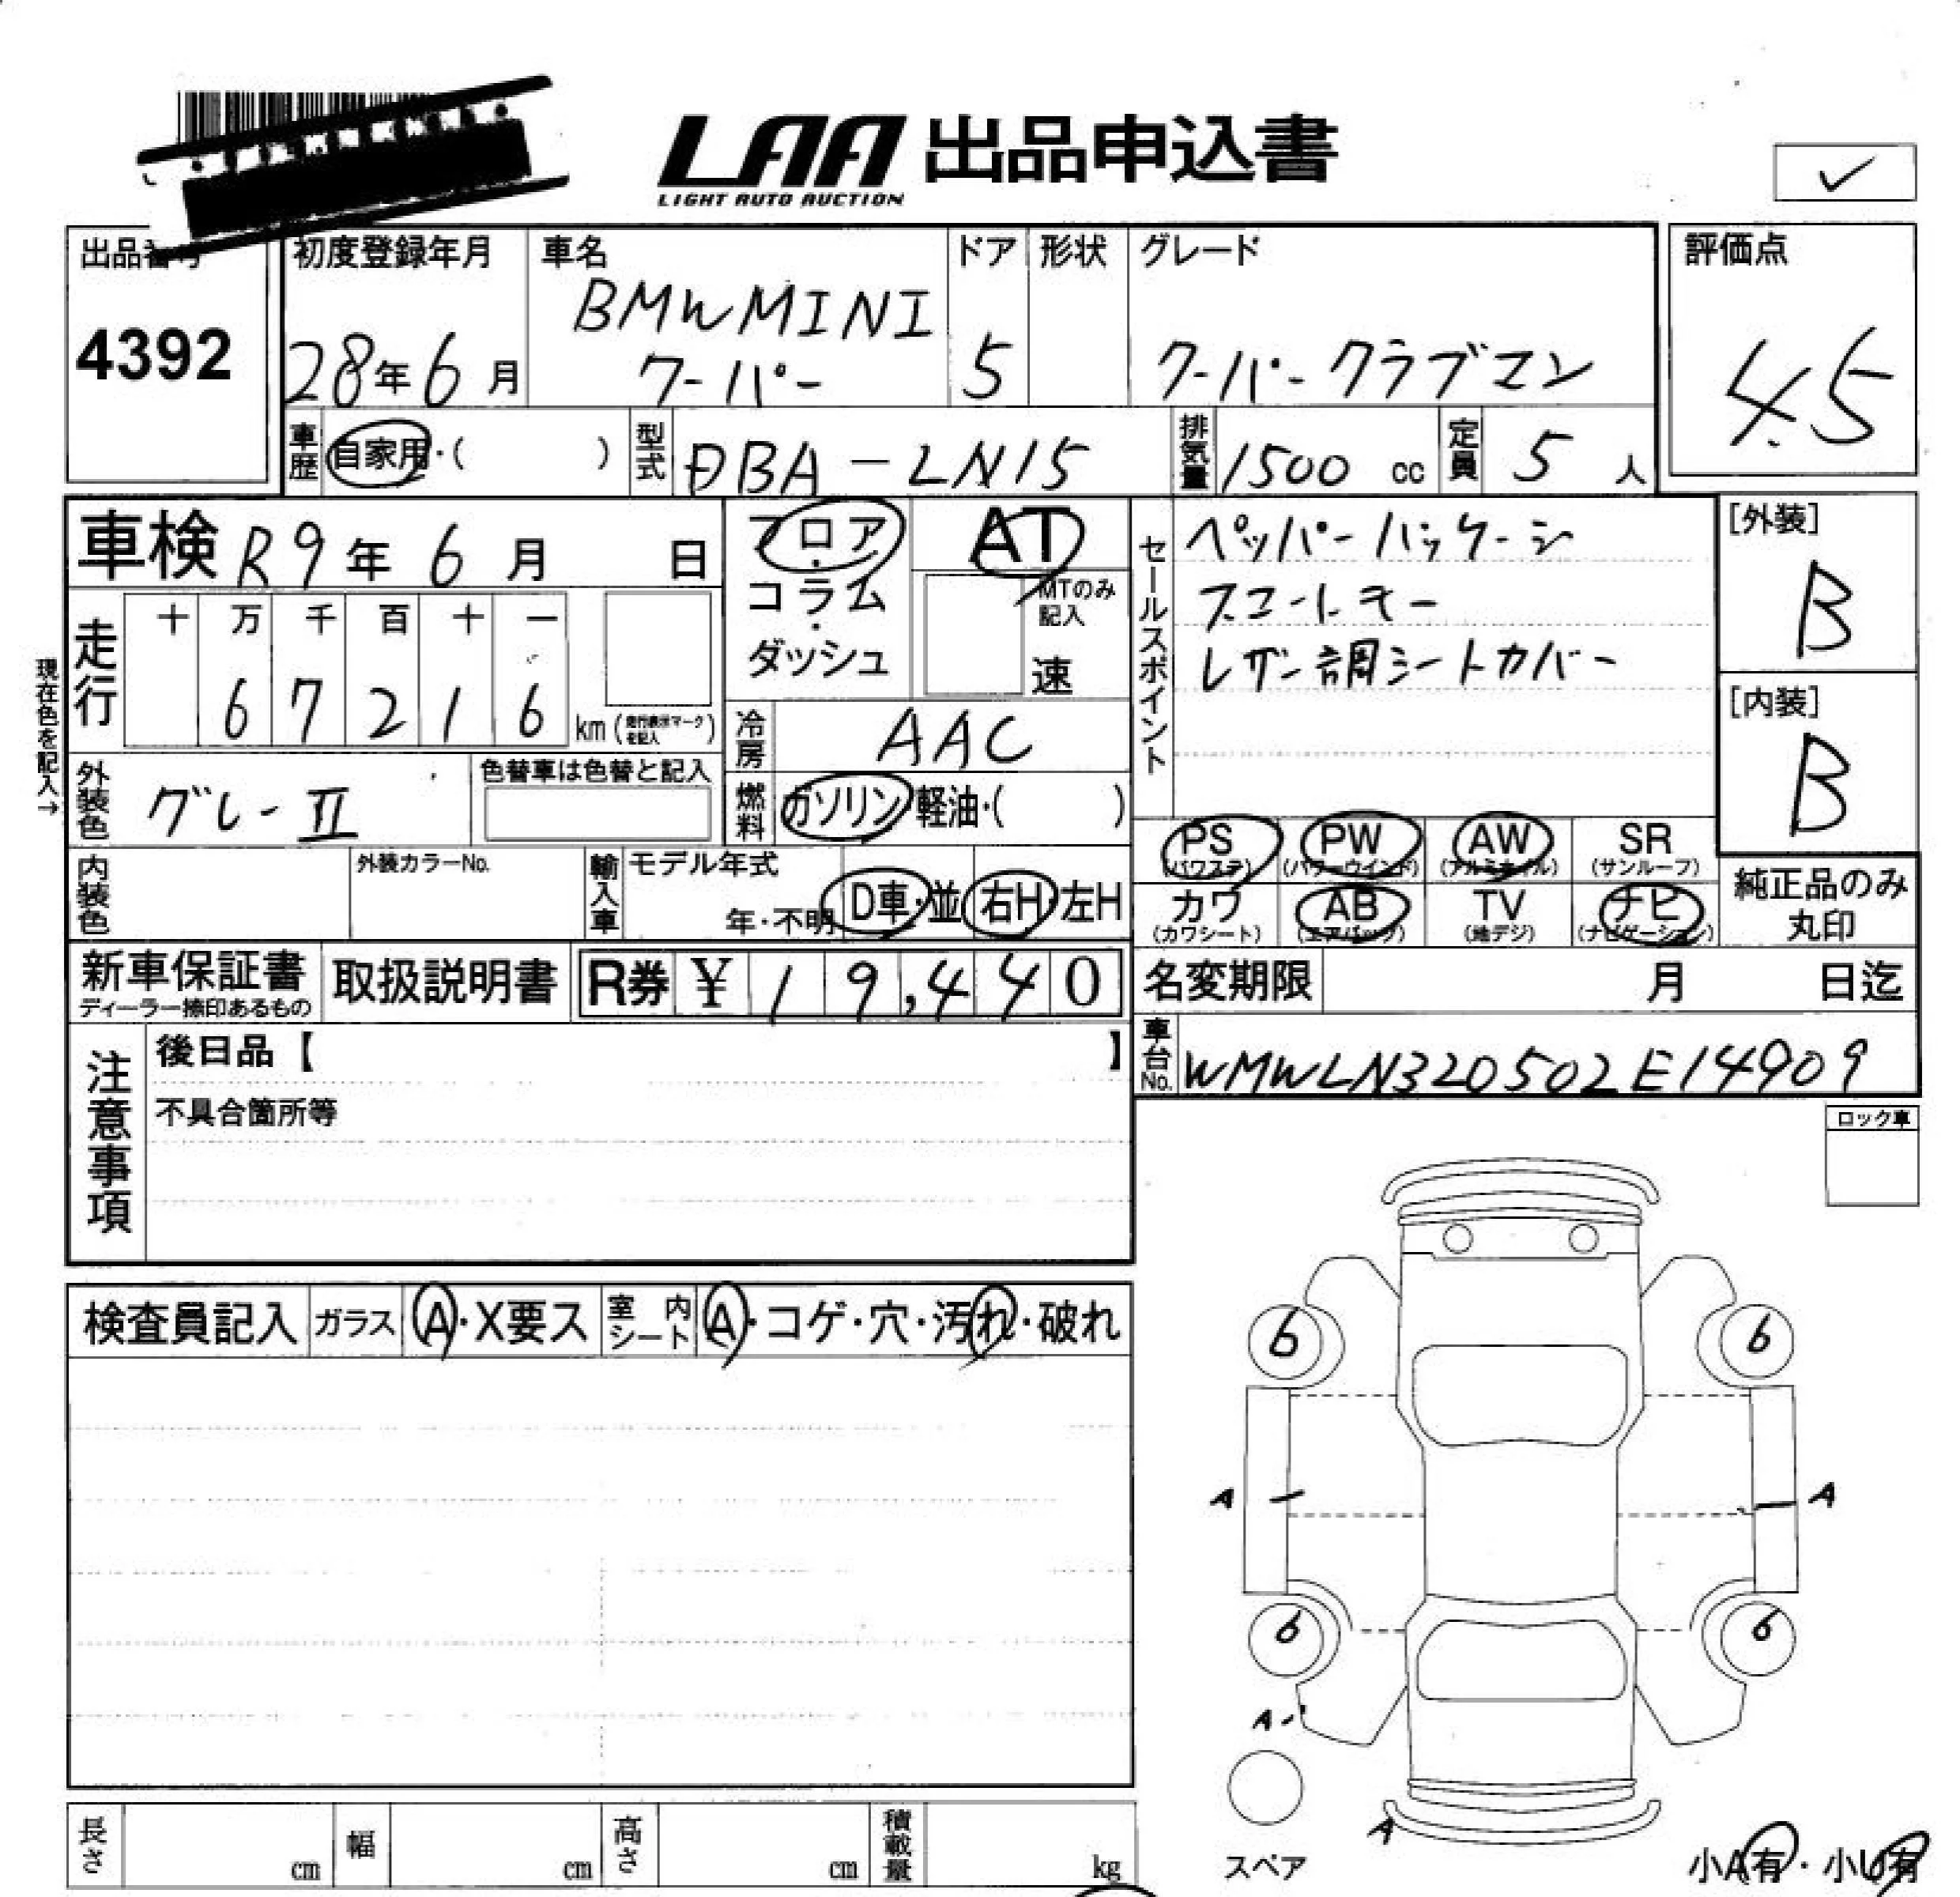 LAA 出品申込書
LIGHT AUTO AUCTION
✓
出品番号 初度登録年月 車名 ドア 形状 グレード 評価点
4392 28年6月 BMW MINI クーパー 5 クーパー クラブマン 4.5
車歴 自家用・( ) 型式 DBA-LN15 排気量 1500 cc 定員 5 人
車検 R9年 6月 日
フロア・コラム・ダッシュ
AT
MTのみ記入
速
セールスポイント
ペッパーパッケージ
スマートキー
レザー調シートカバー
[外装]
B
[内装]
B
現在色を記入→
走行 十 万 千 百 十 一
6 7 2 1 6 km (走行表示マークを記入)
冷房 AAC
外装色 グレーII 色替車は色替と記入
燃料 ガソリン・軽油・( )
PS (パワステ) PW (パワーウインド) AW (アルミホイル) SR (サンルーフ)
カワ (カワシート) AB (エアバッグ) TV (地デジ) ナビ (ナビゲーション)
純正品のみ丸印
内装色 外装カラーNo. 輸入車 モデル年式 年・不明 D車・並 右H・左H
新車保証書
ディーラー捺印あるもの
取扱説明書 R券 ¥ 19,440
名変期限 月 日迄
車台No. WMWLN320502E14909
注意事項
後日品【 】
不具合箇所等
ロック車
検査員記入 ガラス A・X要ス 室内シート A・コゲ・穴・汚れ・破れ
6 6
A A
6 6
A
A
スペア
小A有・小U有
長さ cm 幅 cm 高さ cm 積載量 kg